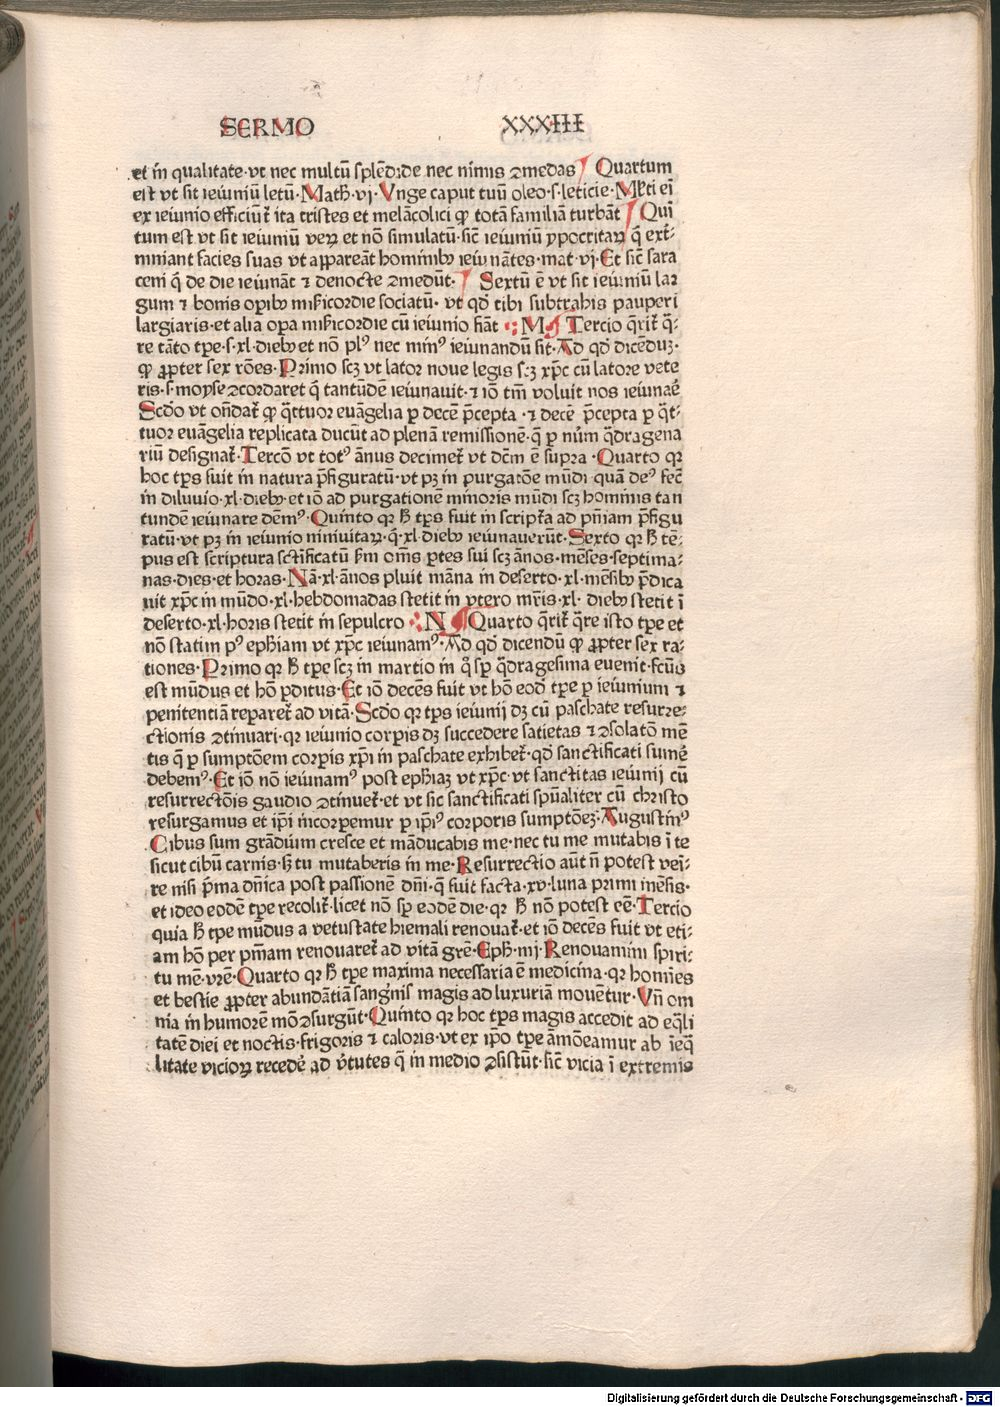 SERMO XXXIII
et in qualitate·vt nec multū splēdide nec nimis ꝯmedas Quartum
est vt sit ieiuniū letū·Math̄·vj·Vnge caput tuū oleo·s·leticie·Ml̄ti eī
ex ieiunio efficiūt̄ ita tristes et melācolici ꝙ totā familiā turbāt Qui
tum est vt sit ieiuniū veꝝ et nō simulatū·sic̄ ieiuniū ypocritaꝝ q̄ ext̄-
miniant facies suas vt appareāt hominibꝫ ieiunātes·mat·vj·Et sic̄ sara
ceni q̄ de die ieiunāt ⁊ denocte ꝯmedūt· Sextū ē vt sit ieiuniū lar
gum ⁊ bonis opibꝫ mīcordie sociatū· vt qd̄ tibi subtrahis pauperi
largiaris·et alia opa mīcordie cū ieiunio fiāt M Tercio q̄rit̄ q̄-
re tāto tp̄e·s·xl·diebꝫ et nō plꝰ nec minꝰ ieiunandū sit·Ad qd̄ dicēduꝫ·
ꝙ ꝓpter sex rōes·Primo scꝫ vt lator noue legis scꝫ xp̄c cū latore vete
ris·s·moyse ꝯcordaret q̄ tantūdē ieiunauit·⁊ iō tm̄ voluit nos ieiunaē
Scdo vt ondat̄ ꝙ q̄ttuor euāgelia p decē p̄cepta·⁊ decē p̄cepta p q̄t-
tuor euāgelia replicata ducūt ad plenā remissionē·q̄ p nūm q̄dragena
riū designat̄·Tercō vt totꝰ ānus decimet̄ vt dcm̄ ē supra·Quarto qꝛ
hoc tp̄s fuit in natura p̄figuratū·vt pꝫ in purgatōe mūdi quā deꝰ fec̄
in diluuio·xl·diebꝫ·et iō ad purgationē minoris mūdi scꝫ hominis tan
tundē ieiunare dēmꝰ·Quinto qꝛ h̄ tp̄s fuit in script̄a ad pn̄iam p̄figu
ratū·vt pꝫ in ieiunio niniuitaꝝ·q̄·xl·diebꝫ ieiunauerūt·Sexto qꝛ h̄ tē-
pus est scriptura sctificatū fm̄ oms̄ ptes sui scꝫ ānos·mēses·septima-
nas·dies·et horas·Nā·xl·ānos pluit māna in deserto·xl·mēsibꝫ p̄dica
uit xp̄c in mūdo·xl·hebdomadas stetit in vtero mr̄is·xl· diebꝫ stetit ī
deserto·xl·horis stetit in sepulcro N Quarto q̄rit̄ q̄re isto tp̄e et
nō statim pꝰ ephiam vt xp̄c ieiunamꝰ·Ad qd̄ dicendū ꝙ ꝓpter sex ra-
tiones·Primo qꝛ h̄ tp̄e scꝫ in martio in q̄ sp̄ q̄dragesima euenit·fcūs
est mūdus et hō pditus·Et iō decēs fuit vt hō eod̄ tp̄e p ieiunium ⁊
penitentiā reparet̄ ad vitā·Scdo qꝛ tp̄s ieiunij dꝫ cū paschate resurre-
ctionis ꝯtinuari·qꝛ ieiunio corpis dꝫ succedere satietas ⁊ ꝯsolatō mē
tis q̄ p sumptōem corpis xp̄i in paschate exhibet̄·qd̄ sanctificati sumē
debemꝰ·Et iō nō ieiunamꝰ post ephiaꝫ vt xp̄c·vt sanctitas ieiunij cū
resurrectōis gaudio ꝯtinuet̄·et vt sic sanctificati spūaliter cū christo
resurgamus et ip̄i incorpemur p ip̄iꝰ corporis sumptōeꝫ·Augustinꝰ
Cibus sum grādium cresce et māducabis me·nec tu me mutabis ī te
sicut cibū carnis·sꝫ tu mutaberis in me·Resurrectio aūt n̄ potest veī-
re nisi p̄ma dn̄ica post passionē dn̄i·q̄ fuit facta·xv·luna primi mēsis·
et ideo eodē tp̄e recolit̄·licet nō sp̄ eodē die·qꝛ h̄ nō potest eē·Tercio
quia h̄ tp̄e mūdus a vetustate hiemali renouat̄·et iō decēs fuit vt eti-
am hō per pn̄iam renouaret̄ ad vitā grē·Eph̄·iiij·Renouamini spiri-
tu mē·vrē·Quarto qꝛ h̄ tp̄e maxima necessaria ē medicina·qꝛ homīes
et bestie ꝓpter abundātiā sang̍nis magis ad luxuriā mouētur·Vn̄ om
nia in humorē mō ꝯsurgūt·Quinto qꝛ hoc tp̄s magis accedit ad eq̄li
tatē diei et noctis·frigoris ⁊ caloris·vt ex ipo tp̄e āmōeamur ab īeq̄
litate vicioꝝ recedē ad v̄tutes q̄ in medio ꝯsistūt·sic̄ vicia ī extremis
Digitalisierung gefördert durch die Deutsche Forschungsgemeinschaft - DFG